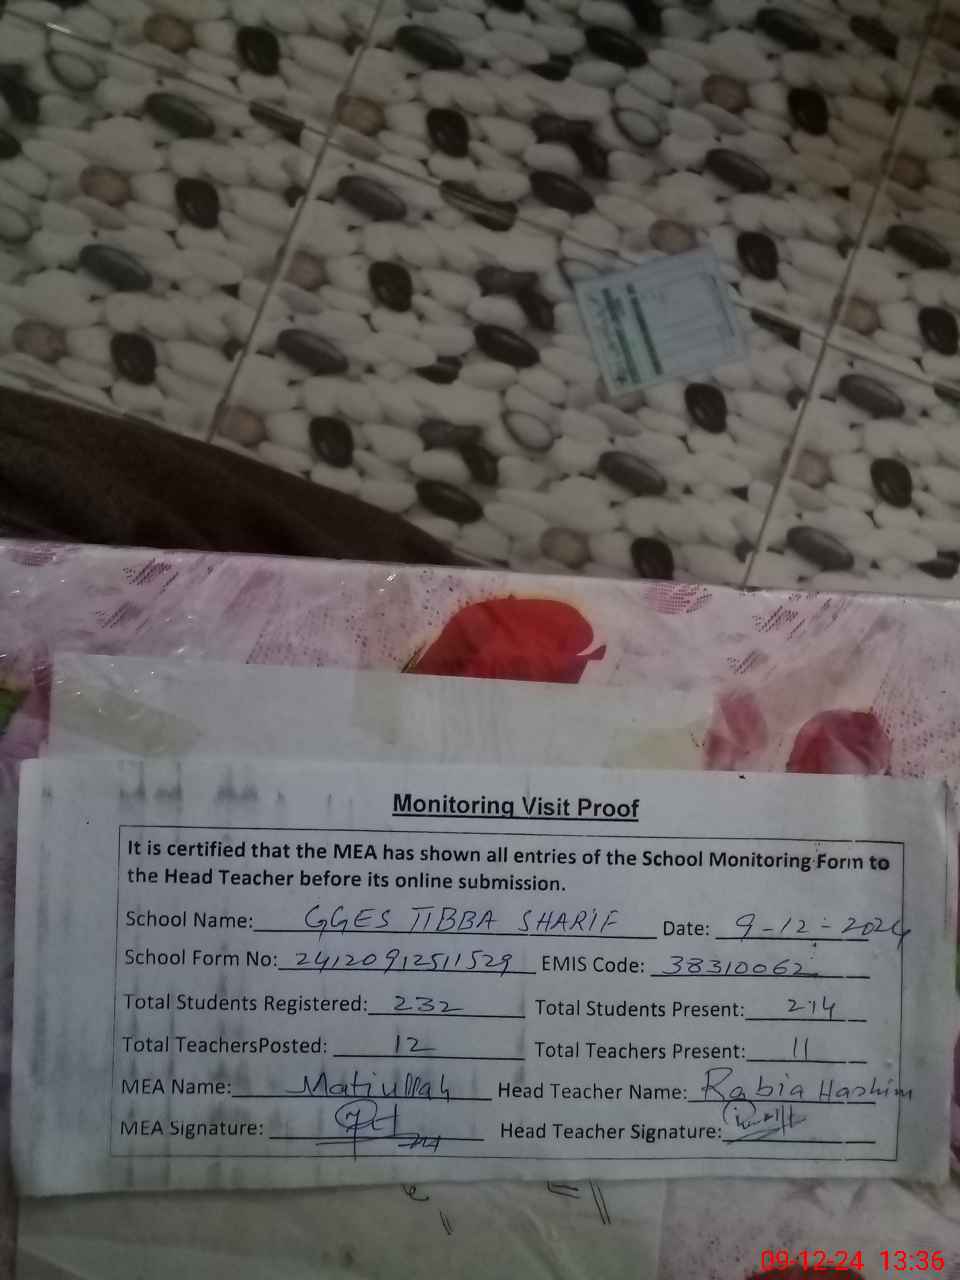 Monitoring Visit Proof
It is certified that the MEA has shown all entries of the School Monitoring Form to
the Head Teacher before its online submission.
School Name: GGES TIBBA SHARIF Date: 9-12-2024
School Form No: 24120912511529 EMIS Code: 38310062
Total Students Registered: 232 Total Students Present: 214
Total TeachersPosted: 12 Total Teachers Present: 11
MEA Name: Matiullah Head Teacher Name: Rabia Hashim
MEA Signature: Head Teacher Signature:
09-12-24 13:36